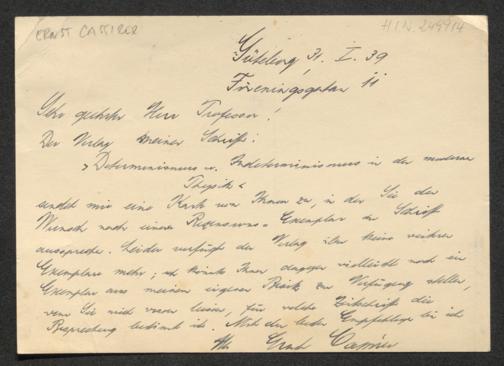 ERNST CASSIRER
H.I.N. 249914
Göteborg, 31. I. 39
Föreningsgatan 11
Sehr geehrter Herr Professor!
Der Verlag meiner Schrift:
»Determinismus u. Indeterminismus in der modernen
Physik«
sendet mir eine Karte von Ihnen zu, in der Sie den
Wunsch nach einem Rezensions-Exemplar der Schrift
aussprechen. Leider verfügt der Verlag über keine weiteren
Exemplare mehr; ich könnte Ihnen dagegen vielleicht noch ein
Exemplar aus meinem eigenen Besitz zur Verfügung stellen,
wenn Sie mich wissen lassen, für welche Zeitschrift die
Besprechung bestimmt ist. Mit den besten Empfehlungen bin ich
Ihr Ernst Cassirer